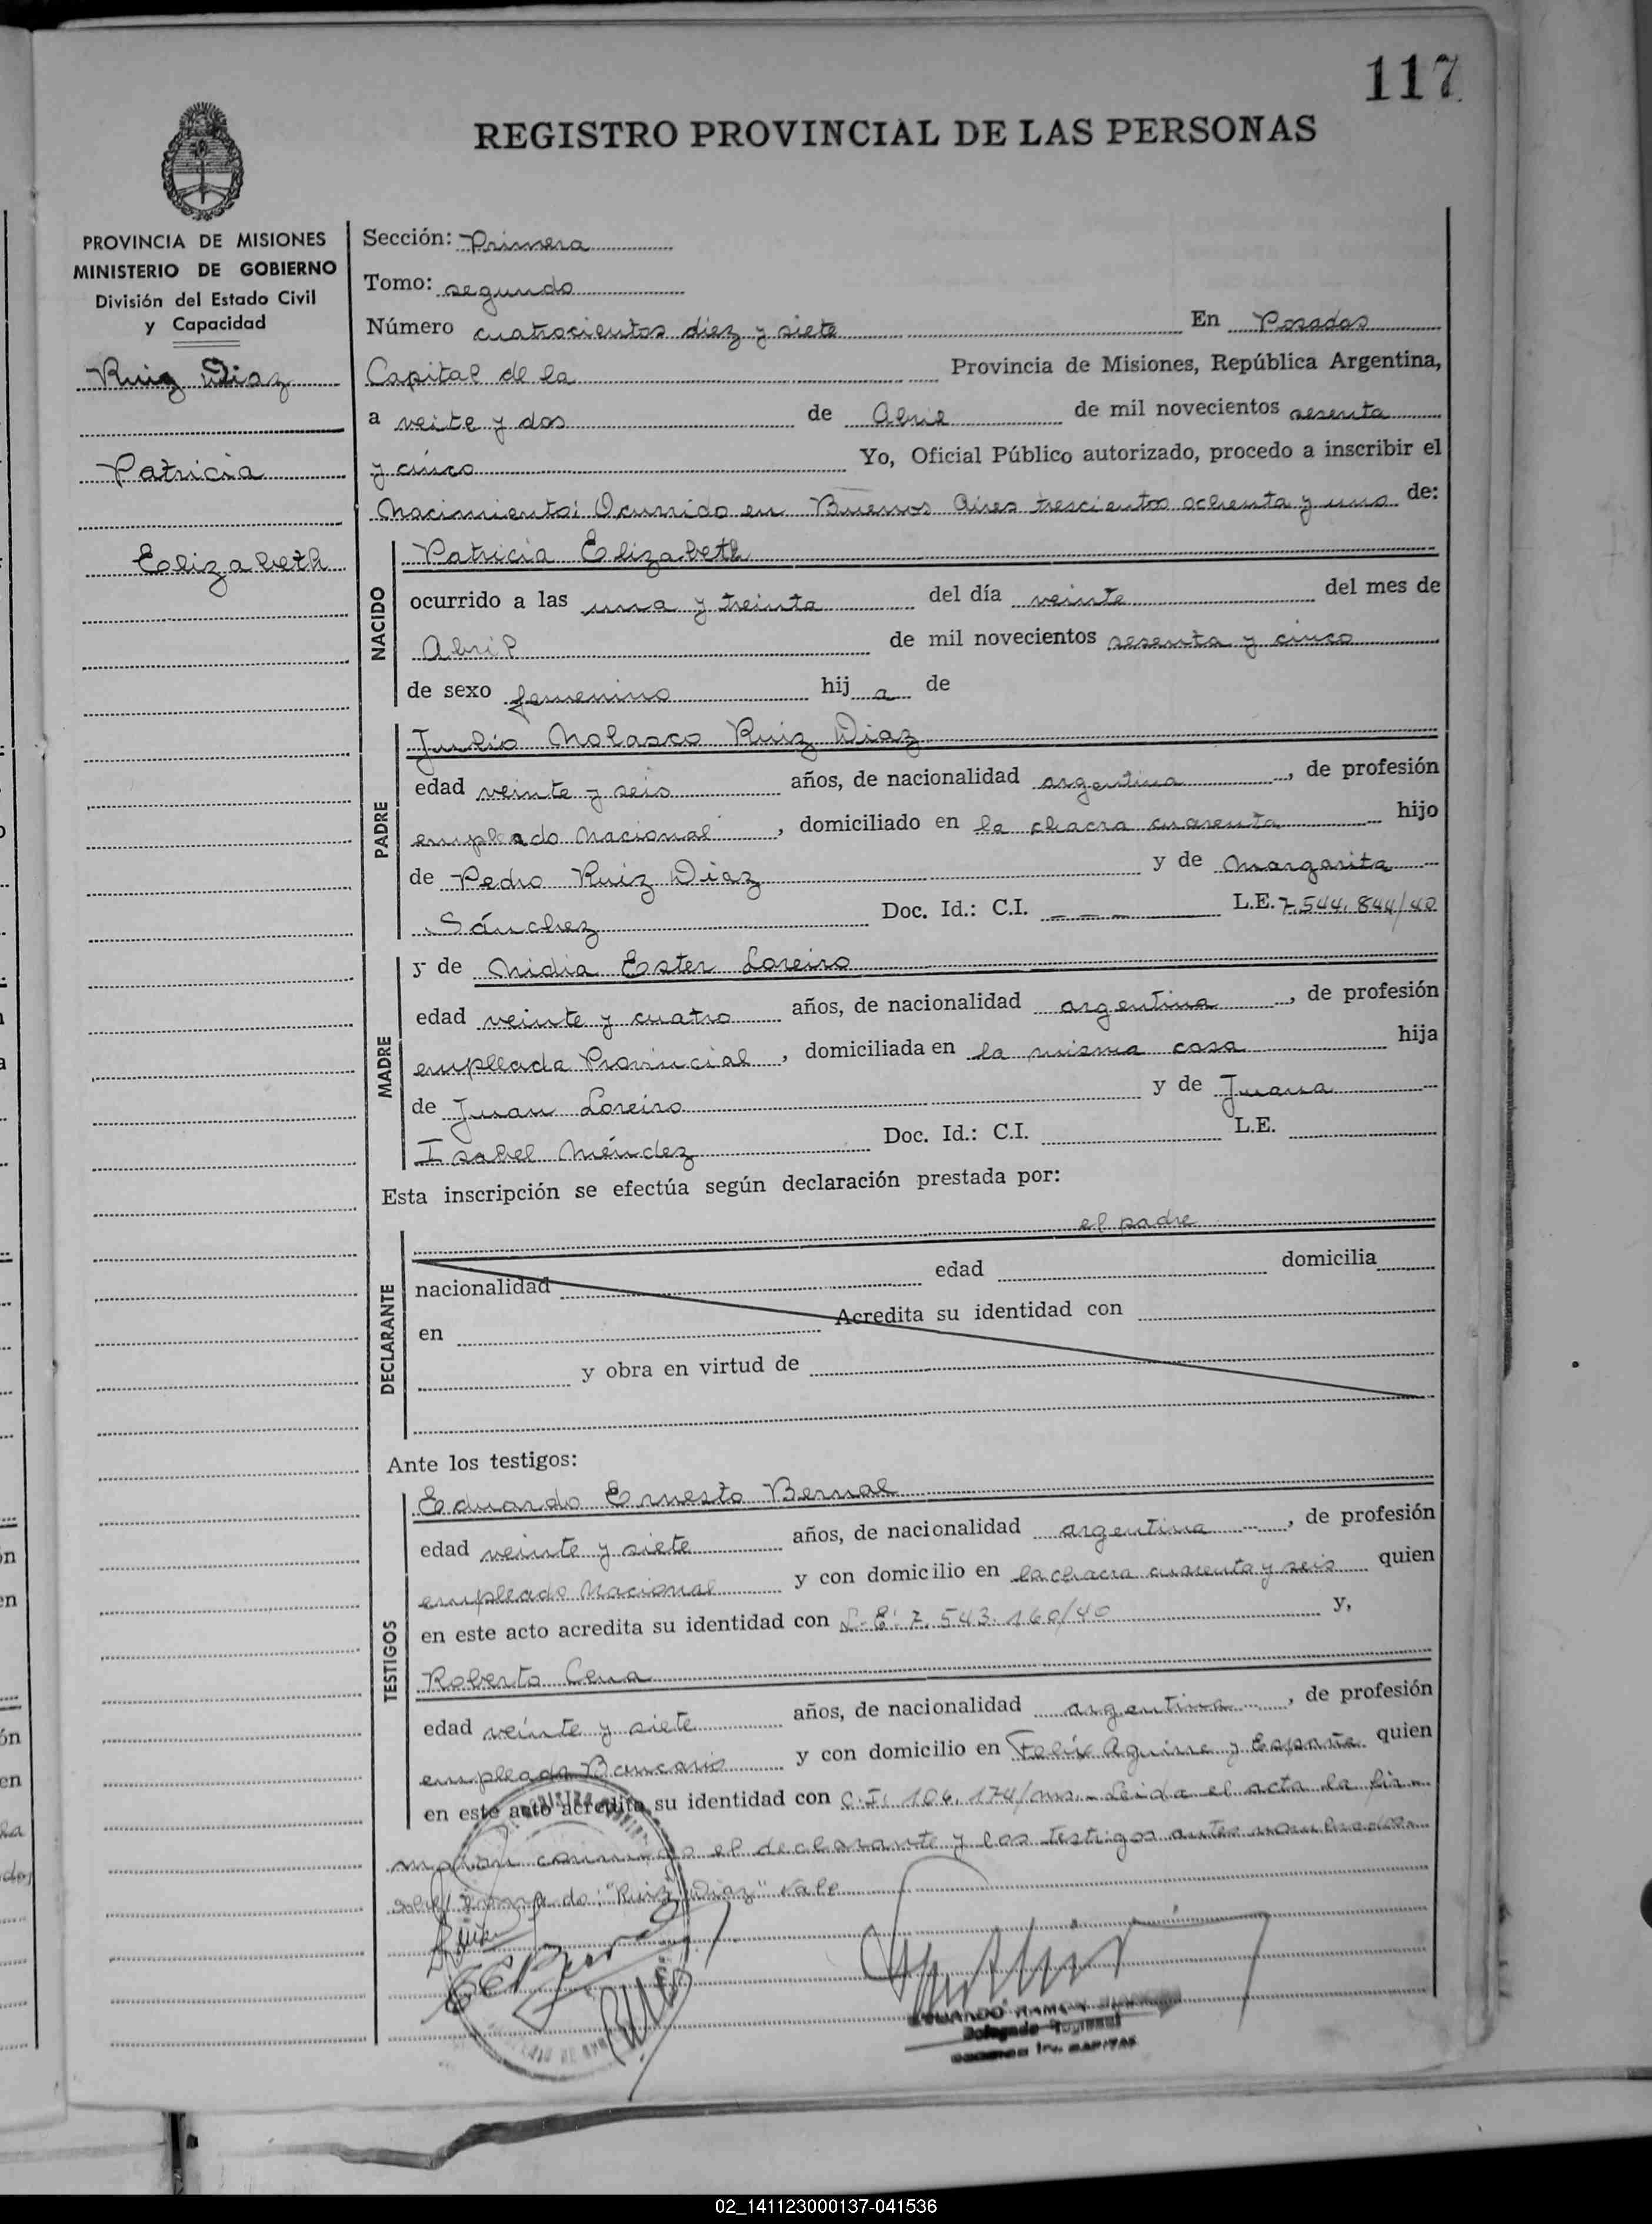 117
REGISTRO PROVINCIAL DE LAS PERSONAS
PROVINCIA DE MISIONES
MINISTERIO DE GOBIERNO
División del Estado Civil
y Capacidad
Ruiz Diaz
Patricia
Elizabeth
Sección: Primera
Tomo: segundo
Número cuatrocientos diez y siete En Posadas
Capital de la Provincia de Misiones, República Argentina,
a veite y dos de Abril de mil novecientos sesenta
y cinco Yo, Oficial Público autorizado, procedo a inscribir el
Nacimiento: Ocurrido en Buenos Aires trescientos ochenta y uno de:
NACIDO
Patricia Elizabeth
ocurrido a las una y treinta del día veinte del mes de
Abril de mil novecientos sesenta y cinco
de sexo femenino hij a de
PADRE
Julio Nolasco Ruiz Diaz
edad veinte y seis años, de nacionalidad argentina, de profesión
empleado Nacional, domiciliado en la chacra cuarenta hijo
de Pedro Ruiz Diaz y de Margarita
Sánchez Doc. Id.: C.I. — — — L.E. 7.544.844/40
MADRE
y de Nidia Ester Loreiro
edad veinte y cuatro años, de nacionalidad argentina, de profesión
empleada Provincial, domiciliada en la misma casa hija
de Juan Loreiro y de Juana
Isabel Méndez Doc. Id.: C.I. L.E.
Esta inscripción se efectúa según declaración prestada por:
DECLARANTE
el padre
nacionalidad edad domicilia
en Acredita su identidad con
y obra en virtud de
Ante los testigos:
TESTIGOS
Eduardo Ernesto Bernal
edad veinte y siete años, de nacionalidad argentina, de profesión
empleado Nacional y con domicilio en la chacra cuarenta y seis quien
en este acto acredita su identidad con L.E: 7.543.160/40 y,
Roberto Cena
edad veinte y siete años, de nacionalidad argentina, de profesión
empleado Bancario y con domicilio en Felix Aguirre y España quien
en este acto acredita su identidad con C.I: 106.174/ms.- Leida el acta la fir-
maron conmigo el declarante y los testigos antes nombrados.
"Ruiz Diaz" Vale
EDUARDO RAMON
Delegado Regional
CAPITAL
02_141123000137-041536